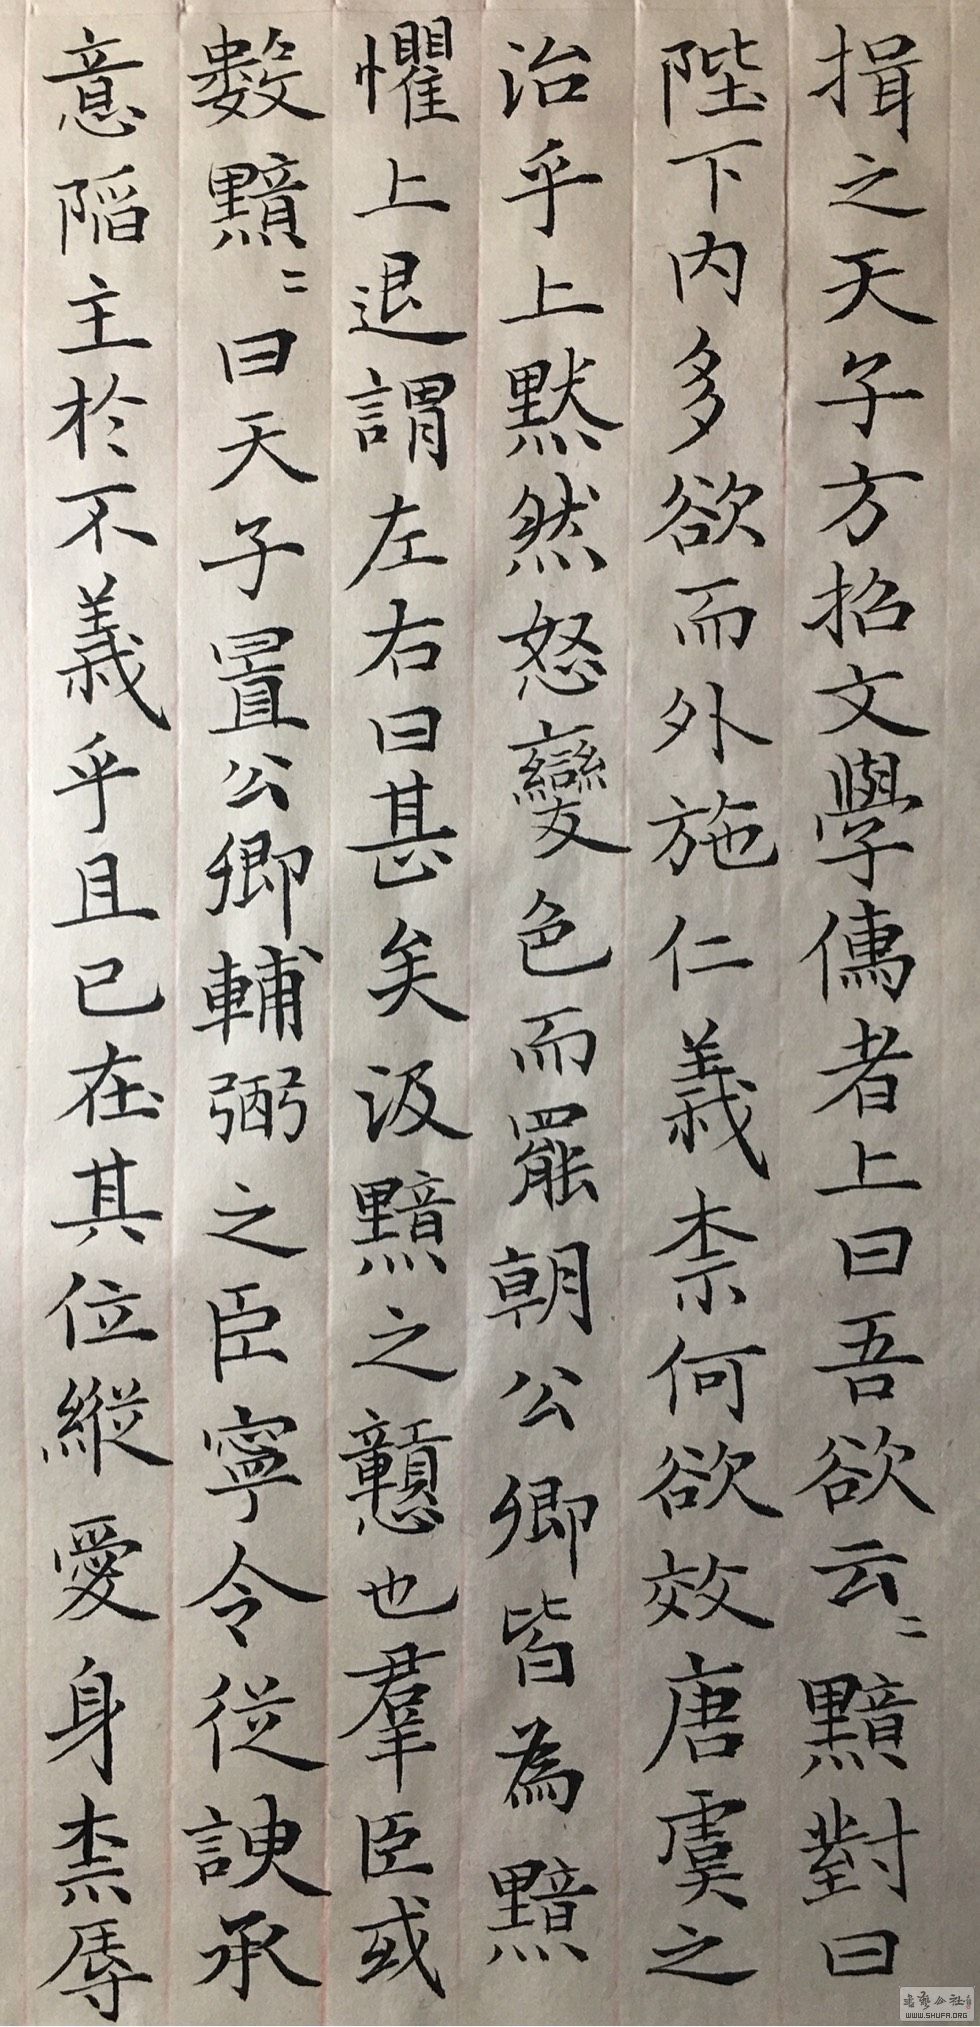 揖之天子方招文學儒者上曰吾欲云〻黯對曰
陛下內多欲而外施仁義柰何欲效唐虞之
治乎上默然怒變色而罷朝公卿皆為黯
懼上退謂左右曰甚矣汲黯之戇也羣臣或
數黯〻曰天子置公卿輔弼之臣寧令從諛承
意陷主於不義乎且已在其位縱愛身柰辱
WWW.SHUFA.ORG